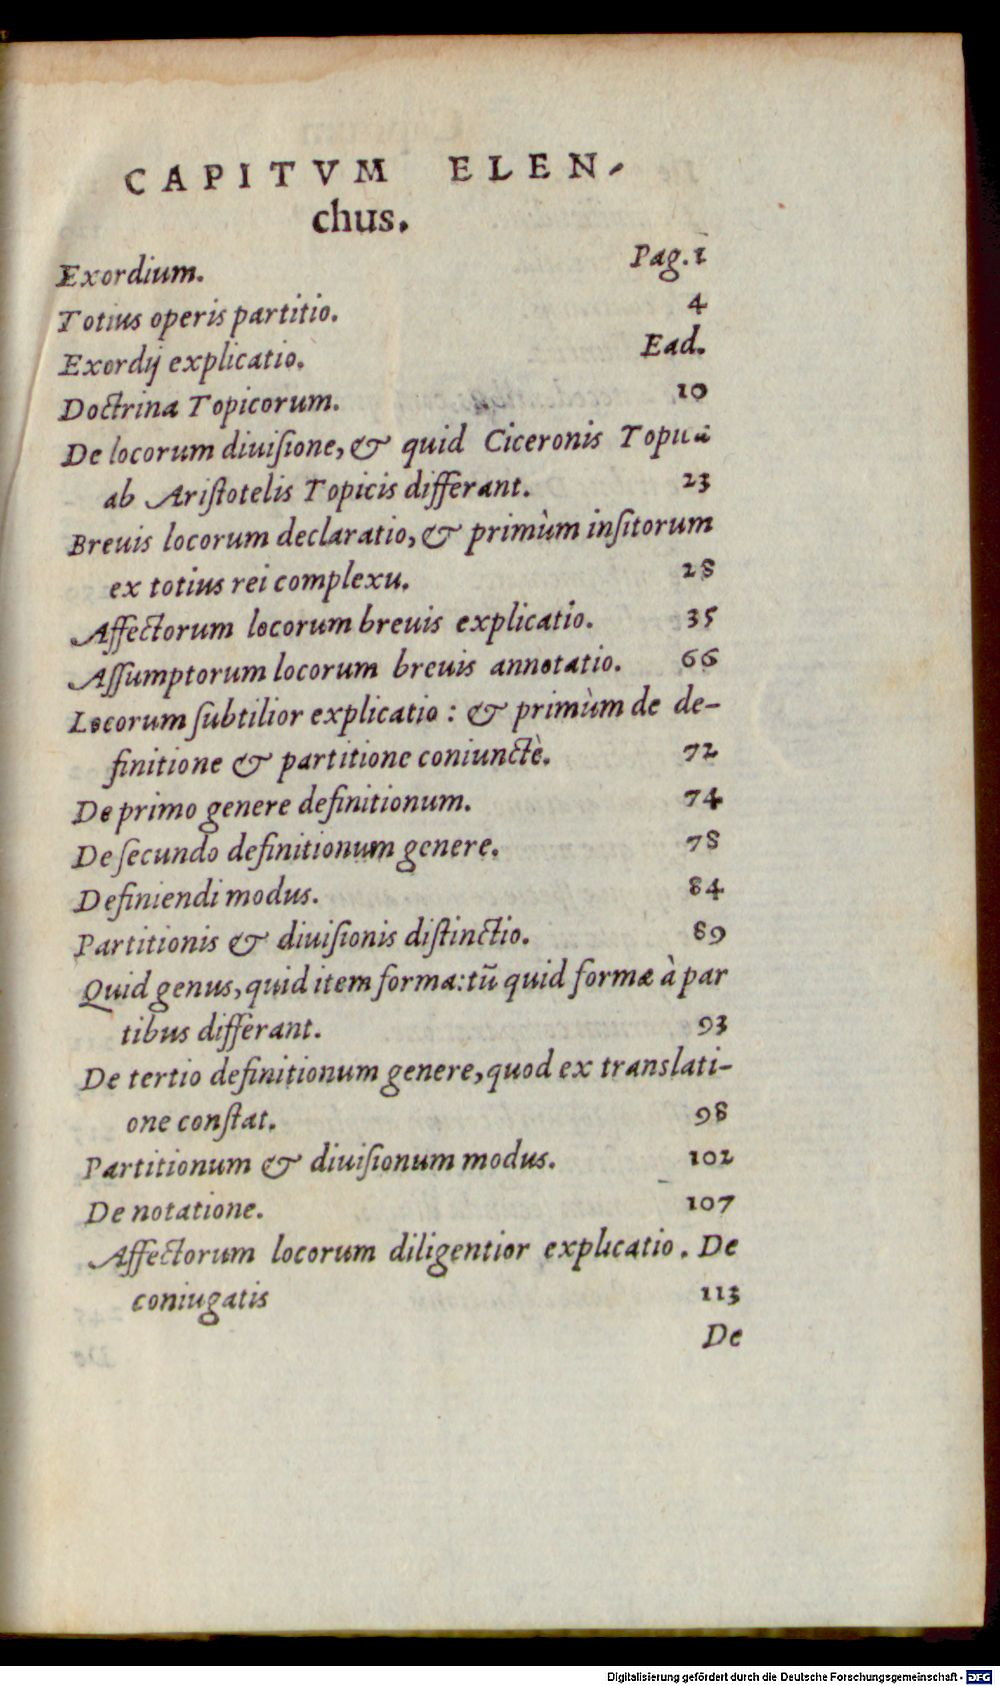 CAPITVM ELEN-
chus.
Exordium. Pag. 1
Totius operis partitio. 4
Exordij explicatio. Ead.
Doctrina Topicorum. 10
De locorum diuiſione, & quid Ciceronis Topica
ab Ariſtotelis Topicis differant. 23
Breuis locorum declaratio, & primùm inſitorum
ex totius rei complexu. 28
Affectorum locorum breuis explicatio. 35
Aſſumptorum locorum breuis annotatio. 66
Locorum ſubtilior explicatio: & primùm de de-
finitione & partitione coniunctè. 72
De primo genere definitionum. 74
De ſecundo definitionum genere. 78
Definiendi modus. 84
Partitionis & diuiſionis diſtinctio. 89
Quid genus, quid item forma: tũ quid formæ à par
tibus differant. 93
De tertio definitionum genere, quod ex translati-
one conſtat. 98
Partitionum & diuiſionum modus. 102
De notatione. 107
Affectorum locorum diligentior explicatio. De
coniugatis 113
De
Digitalisierung gefördert durch die Deutsche Forschungsgemeinschaft - DFG